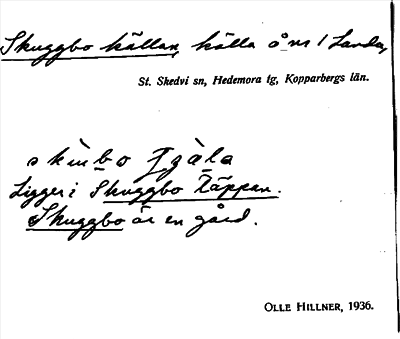 Skuggbo källan, källa å ns 1 Landa,
St. Skedvi sn, Hedemora tg, Kopparbergs län.
Ligger i Skuggbo täppan.
Skuggbo är en gård.
OLLE HILLNER, 1936.